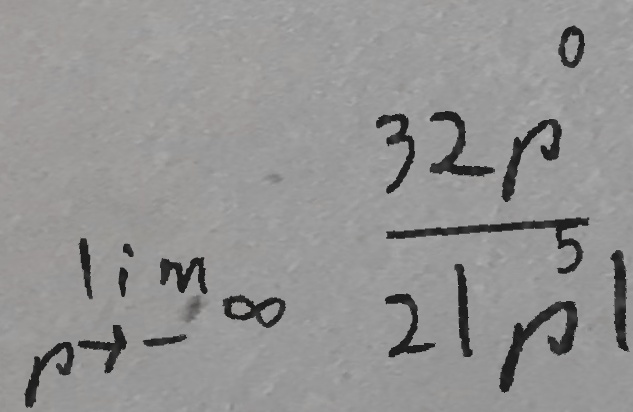 \lim_{p \to -\infty} \frac{32p^0}{2|p^5|}